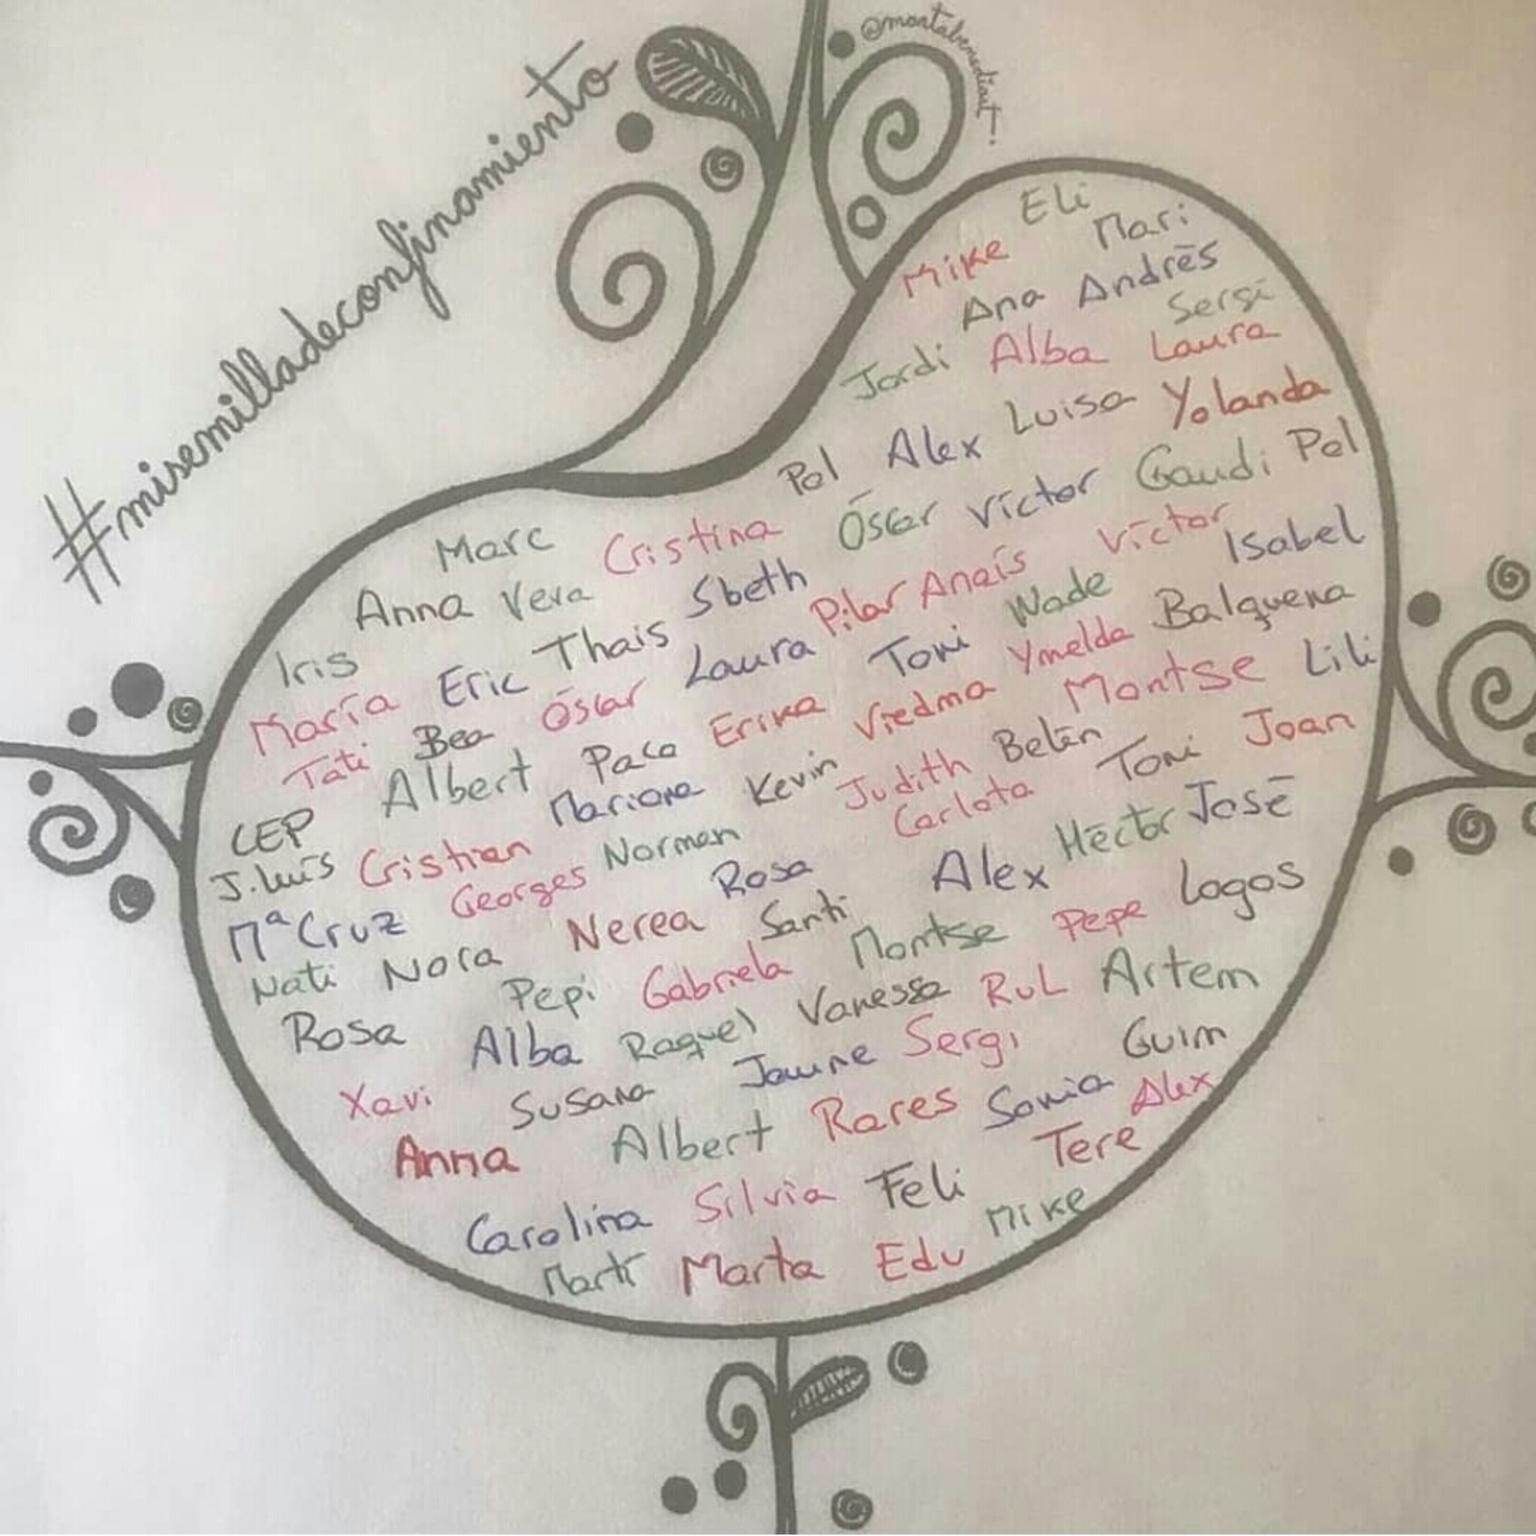 #misemilladeconfinamiento
@martabenediart.
Eli
Mike Mari
Ana Andrés
Sergi
Jordi Alba Laura
Luisa Yolanda
Pol Alex
Óscar Víctor Gaudi Pol
Marc Cristina
Anna Vera Sbeth Pilar Anaís Víctor Isabel
Iris Thais Wade
María Eric Laura Toni Ymelda Balquena
Tati Bea Óscar
Albert Paco Erika Viedma Montse Lili
CEP Mariona Kevin Judith Belén Toni Joan
J.Luís Cristian Georges Norman Carlota
Mª Cruz Rosa Alex Héctor José
Nati Nora Nerea Santi Logos
Pepi Gabriela Montse Pepe
Rosa Alba Raquel Vanessa RuL Artem
Xavi Susana Jaume Sergi Guim
Anna Albert Rares Sonia Alex
Carolina Silvia Feli Tere
Martí Marta Edu Mike